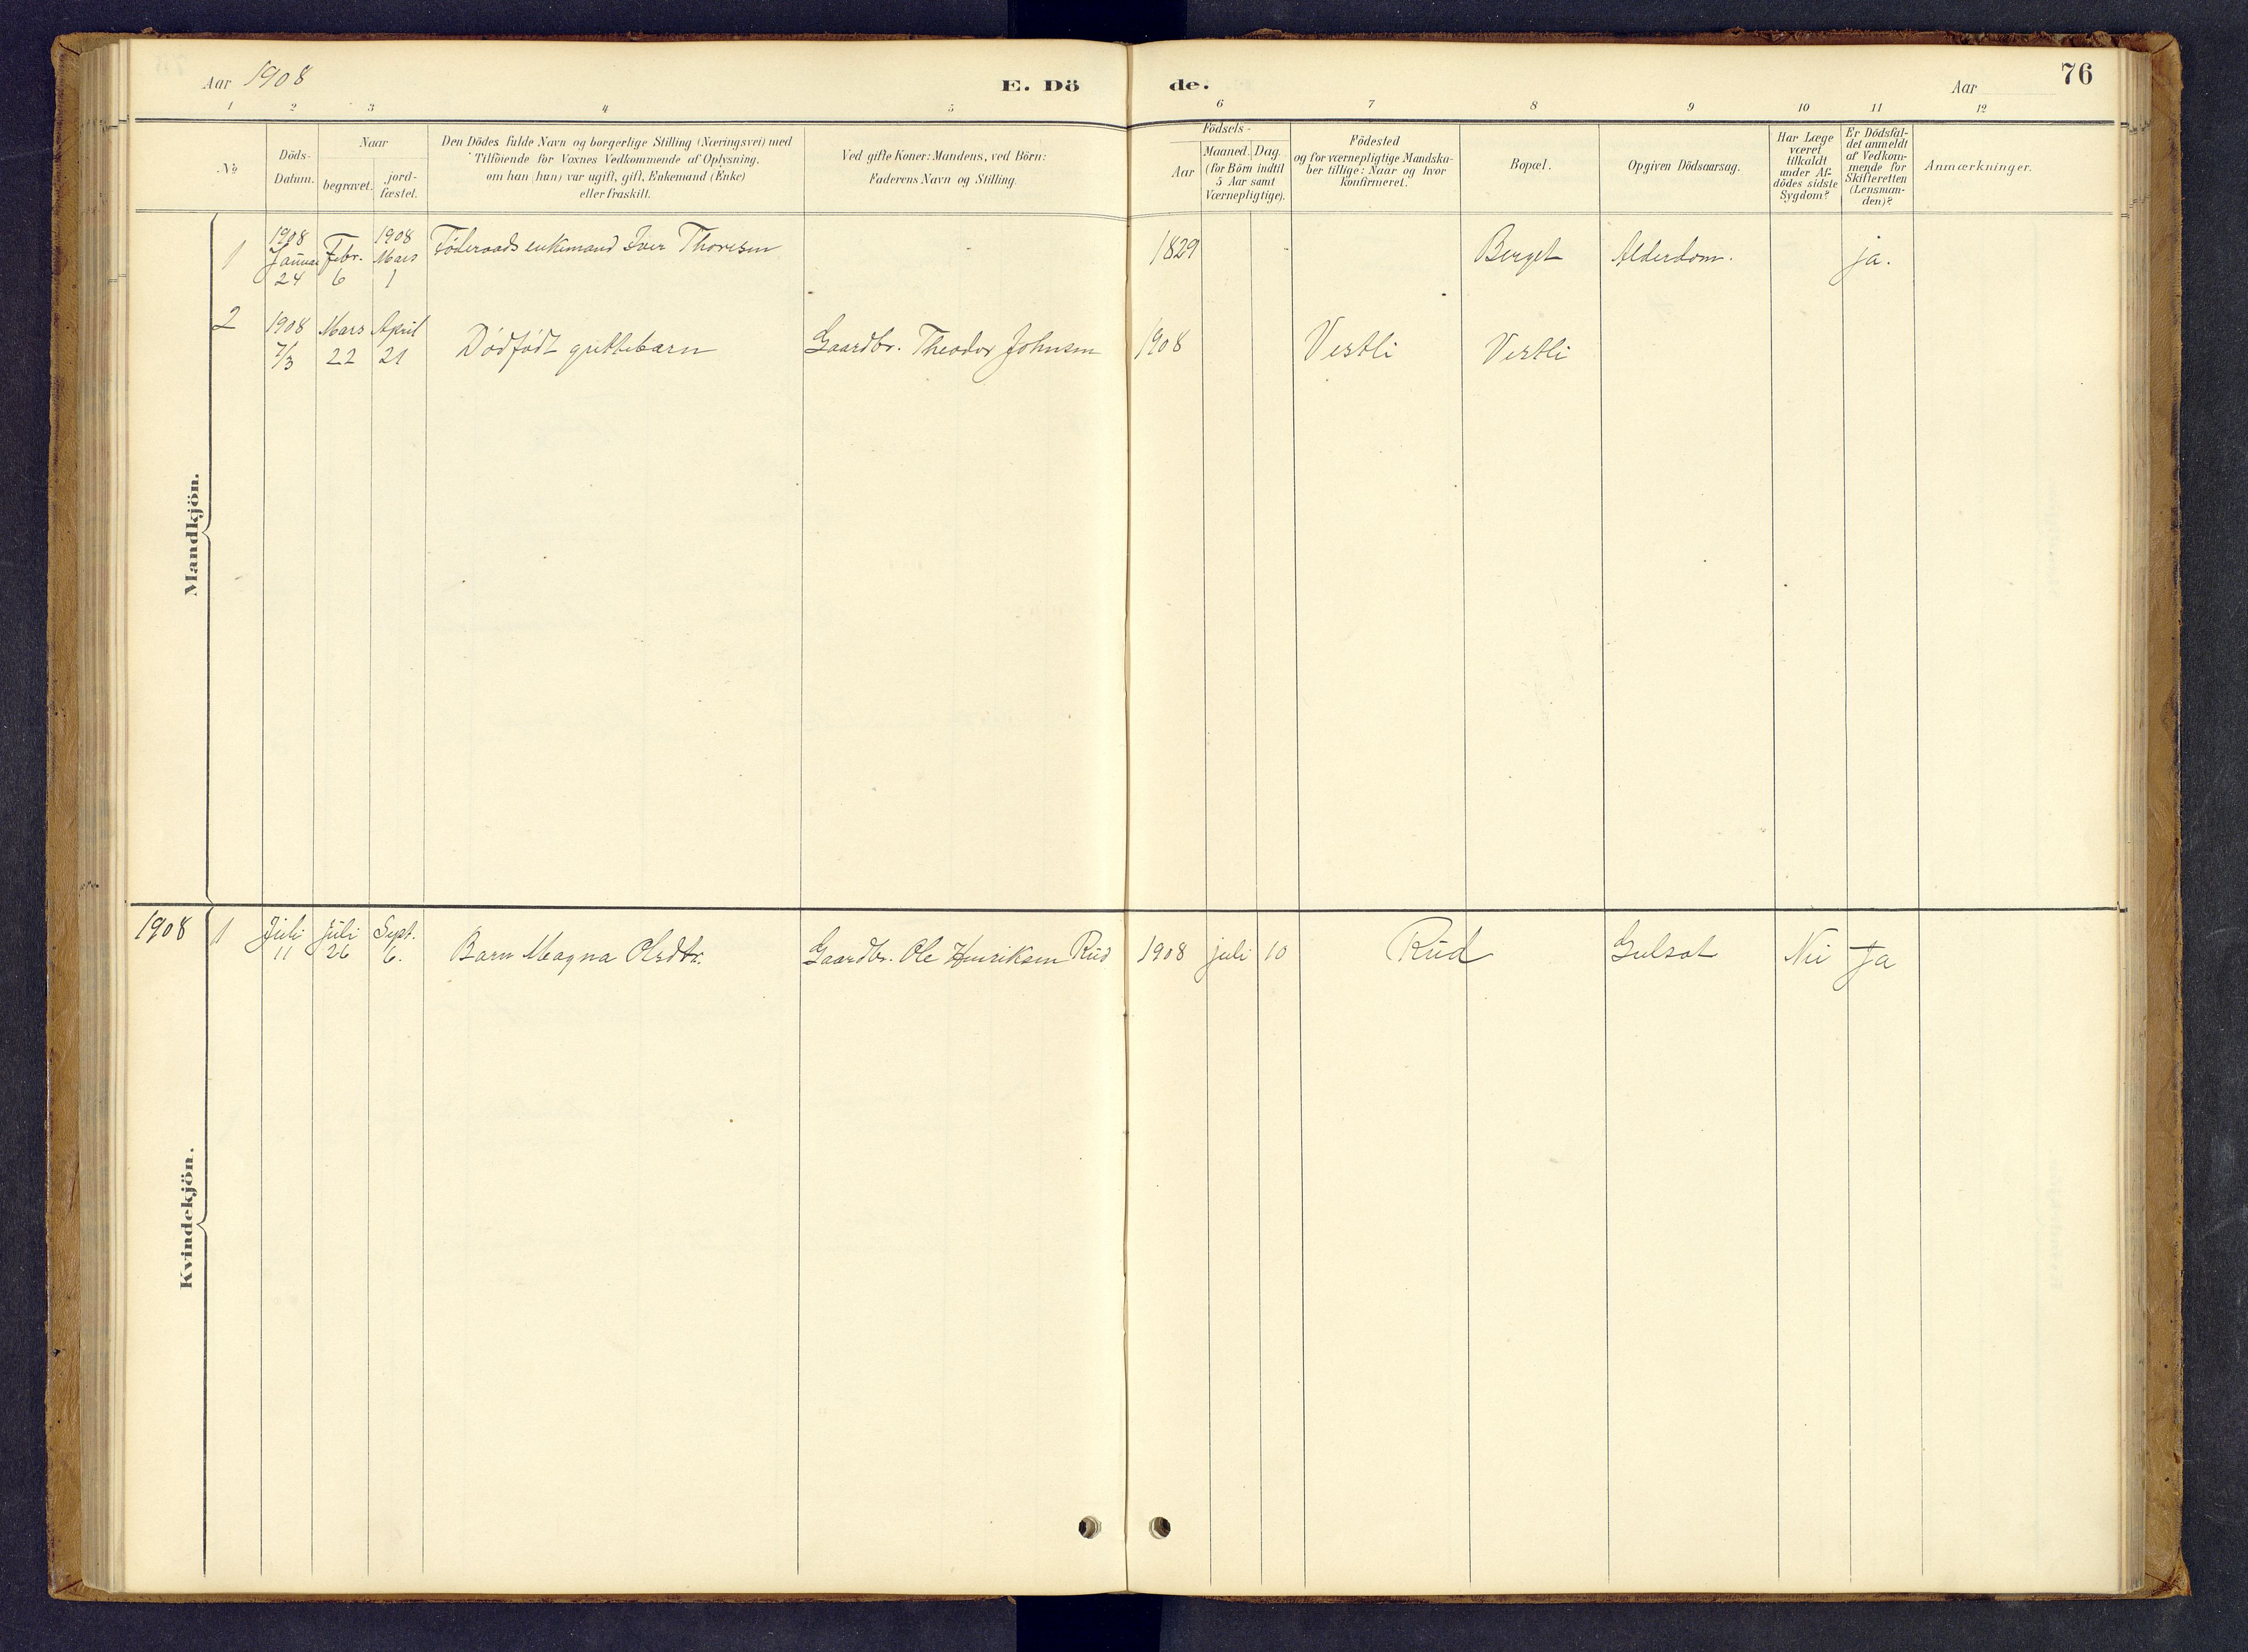 Aar 1908
E. Dö
de.
Aar
76
1 2 3 4 5 6 7 8 9 10 11 12
№
Döds-
Datum.
Naar
begravet.
jord-
fæstet.
Den Dödes fulde Navn og borgerlige Stilling (Næringsvei) med
Tilföiende for Voxnes Vedkommende af Oplysning,
om han (hun) var ugift, gift, Enkemand (Enke)
eller fraskilt.
Ved gifte Koner: Mandens, ved Börn:
Faderens Navn og Stilling.
Födsels-
Aar
Maaned. Dag.
(for Börn indtil
5 Aar samt
Værnepligtige).
Födested
og for værnepligtige Mandska-
ber tillige: Naar og hvor
Konfirmeret.
Bopæl.
Opgiven Dödsaarsag.
Har Læge
været
tilkaldt
under Af-
dödes sidste
Sygdom?
Er Dödsfal-
det anmeldt
af Vedkom-
mende for
Skifteretten
(Lensman-
den)?
Anmærkninger.
Mandkjön.
1 1908 Januar 24 Febr. 6 1908 Mars 1 Föderaads enkemand Iver Thoresen 1829 Berget Alderdom. ja.
2 1908 7/3 Mars 22 April 21 Dödfödt guttebarn Gaardbr. Theodor Johnsen 1908 Vestli Vestli
Kvindekjön.
1908 1 Juli 11 Juli 26 Sept. 6. Barn Magna Olsdtr. Gaardbr. Ole Henriksen Rud 1908 juli 10 Rud Gulsot Nei Ja